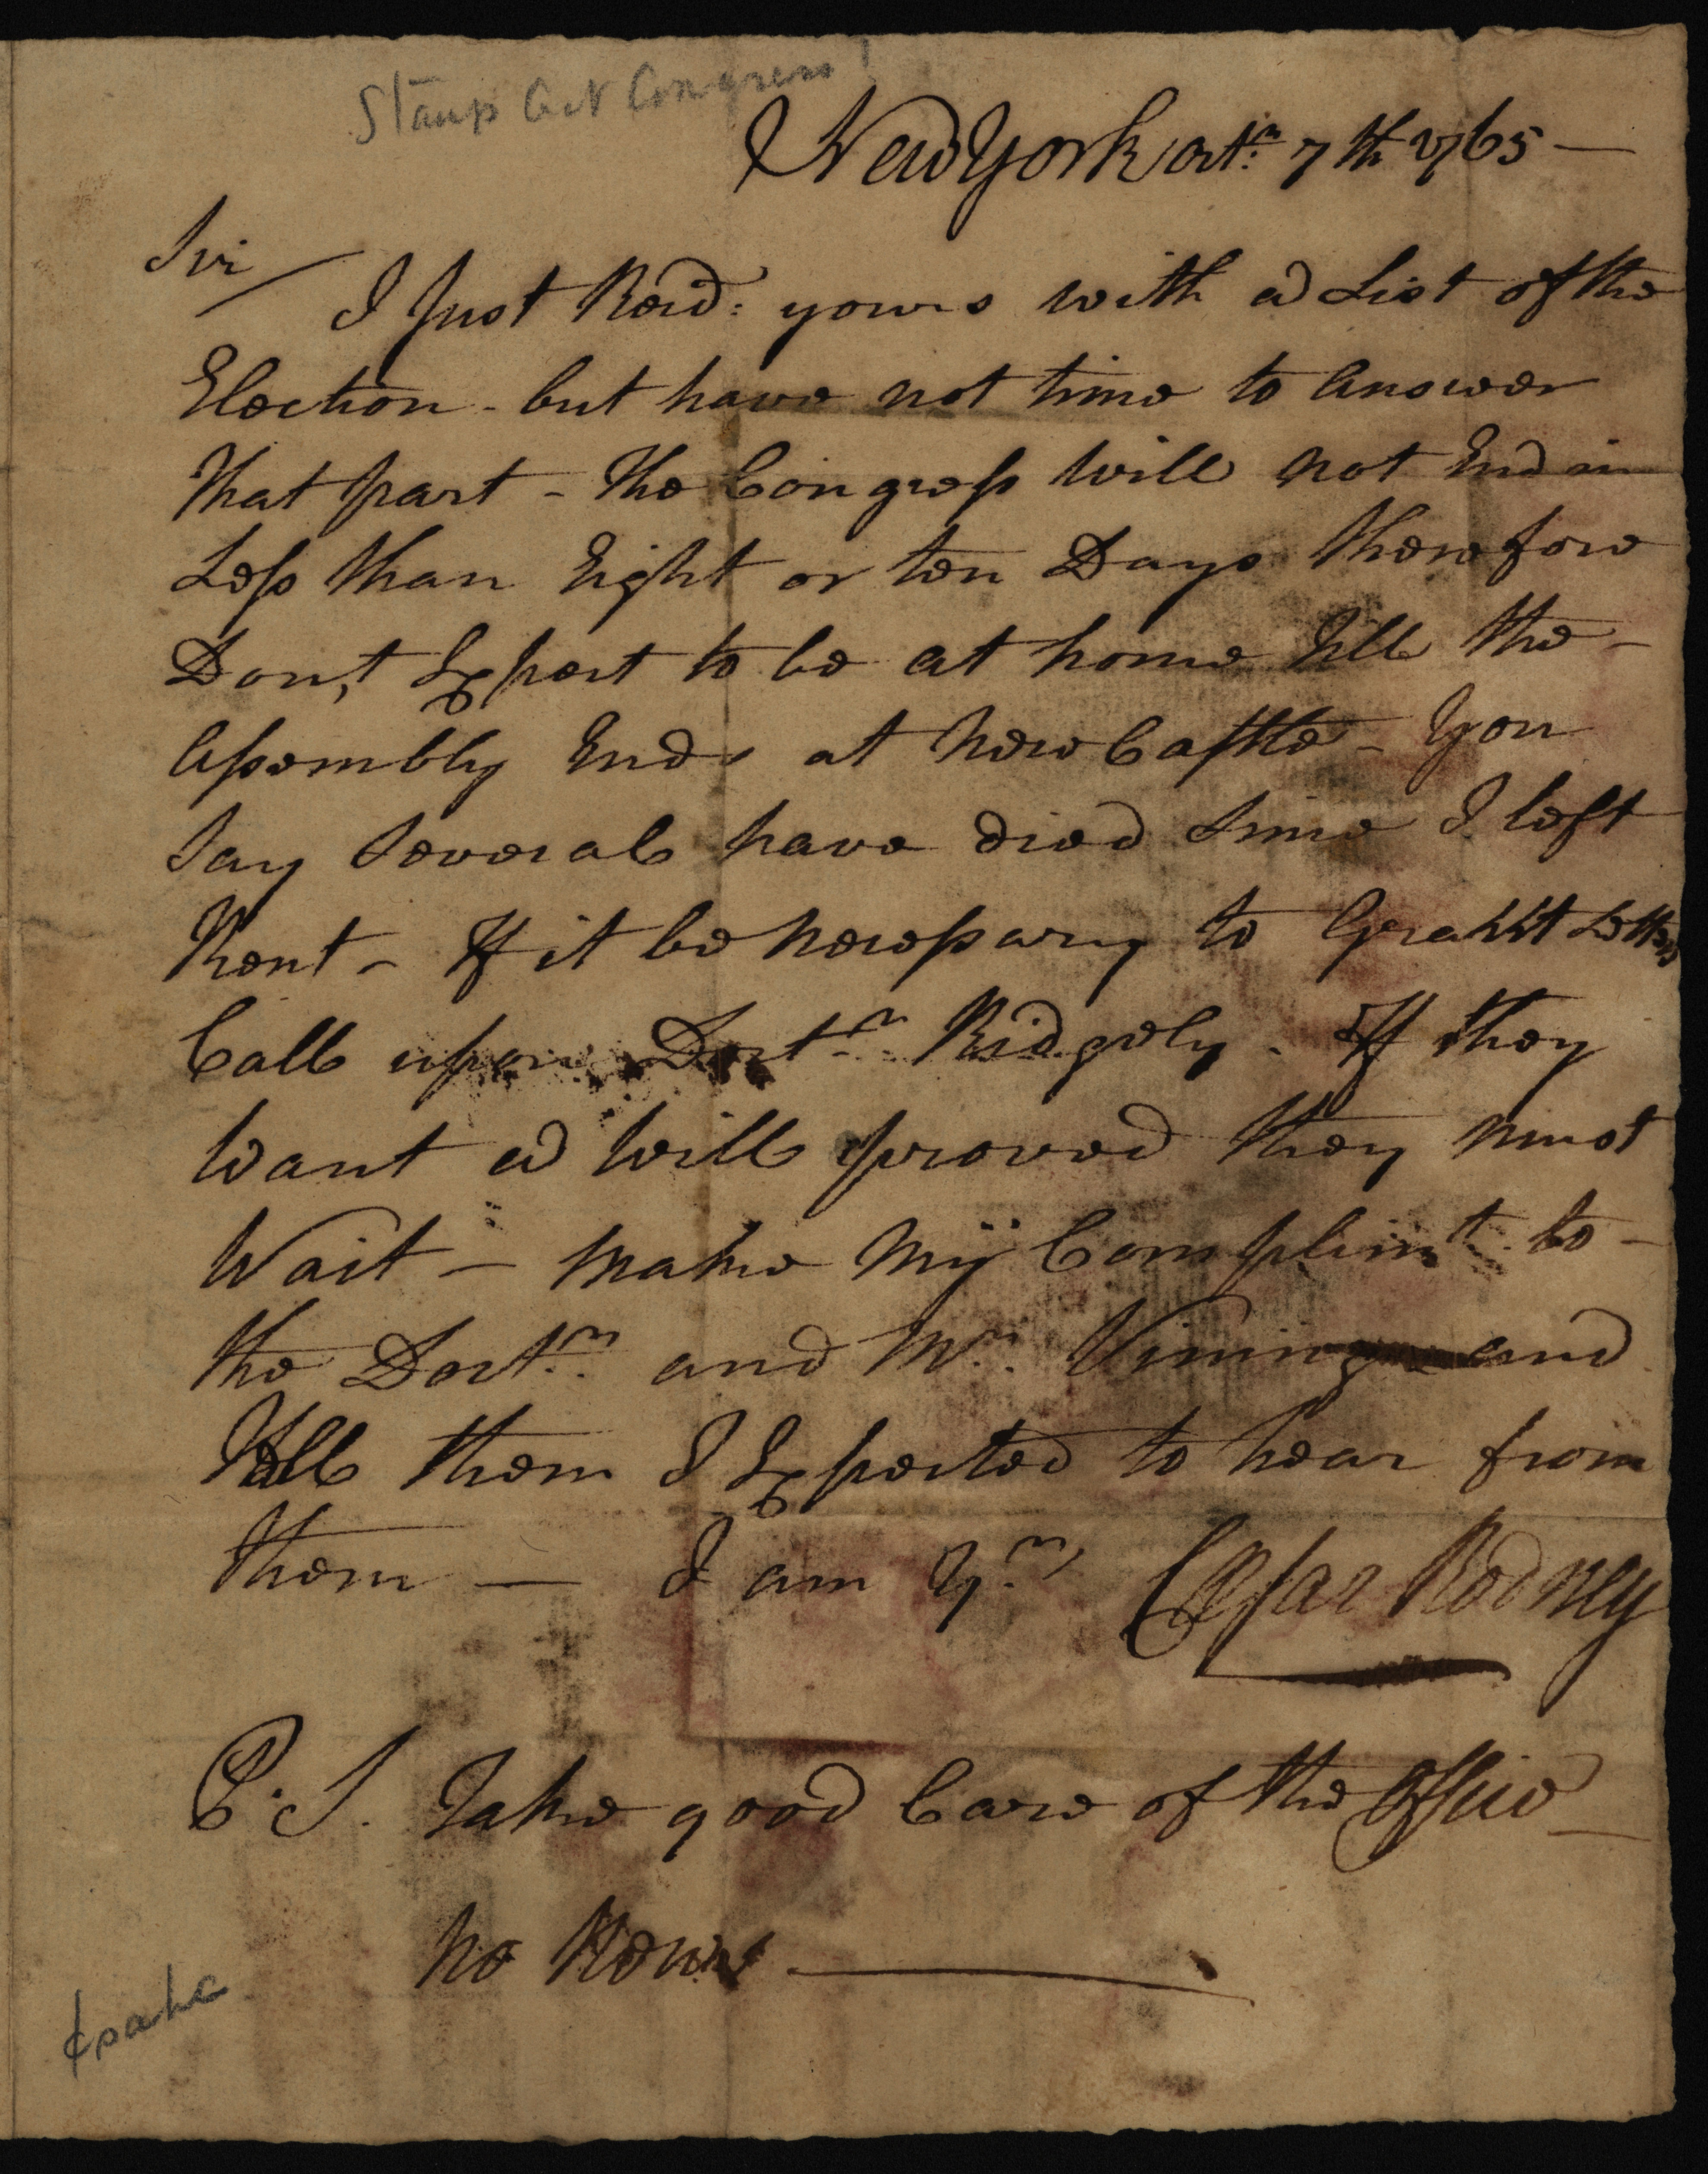 Stamp Act Congress!
New York Octr. 7th 1765 —
Sir
I Just Recd: yours with a List of the
Election - but have not time to answer
that part - The Congress will not End in
Less than Eight or ten Days therefore
Don,t Expect to be at home till the -
Assembly Ends at New Castle - You
Say Several have died Since I left
Kent - If it be necessary to Grant Letters
Call upon Doctr. Ridgely. If they
want a will proved they must
Wait - make my Complimt. to -
the Doctr. and Mr. Vining and
Tell them I Expected to hear from
them — I am Yrs. Cæsar Rodney
P. S. Take good Care of the Office
No News —